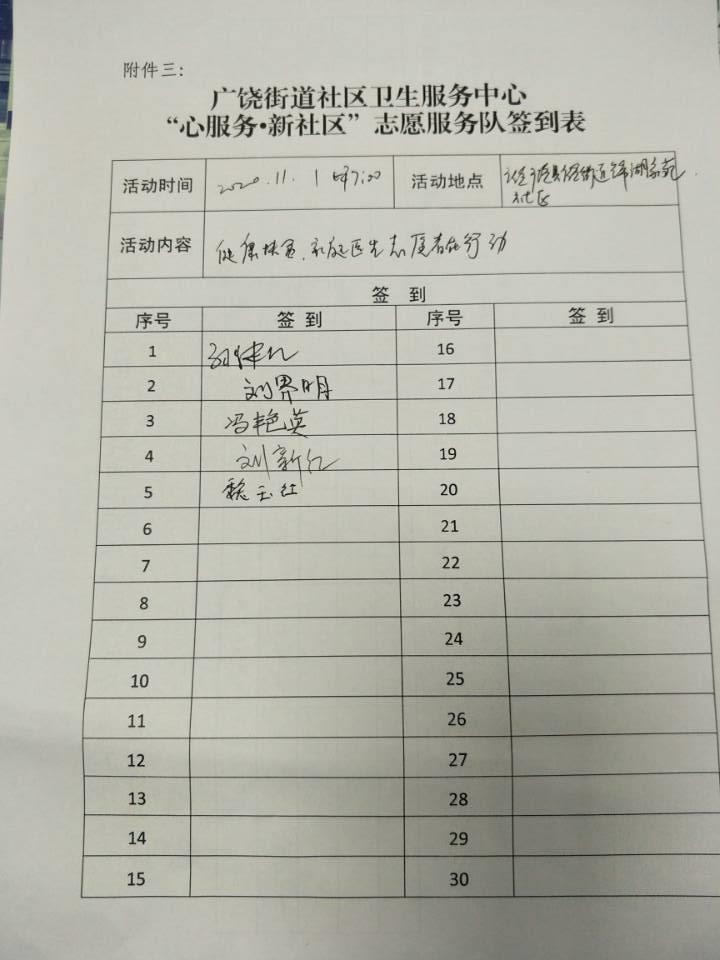 附件三：
广饶街道社区卫生服务中心
“心服务•新社区”志愿服务队签到表
活动时间 2020.11.1 7:00 活动地点
社区
活动内容 健康扶贫、家庭医生志愿者在行动
签 到
序号 签 到 序号 签 到
1 16
2 刘界明 17
3 冯艳英 18
4 刘新红 19
5 魏玉红 20
6 21
7 22
8 23
9 24
10 25
11 26
12 27
13 28
14 29
15 30